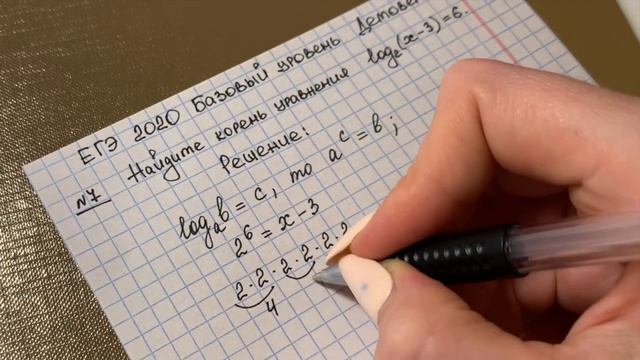 ЕГЭ 2020 Базовый уровень
№7 Найдите корень уравнения log₂(x-3)=6.
Решение:
logₐb = c, то aᶜ = b;
2⁶ = x-3
2·2·2·2·2·2
4